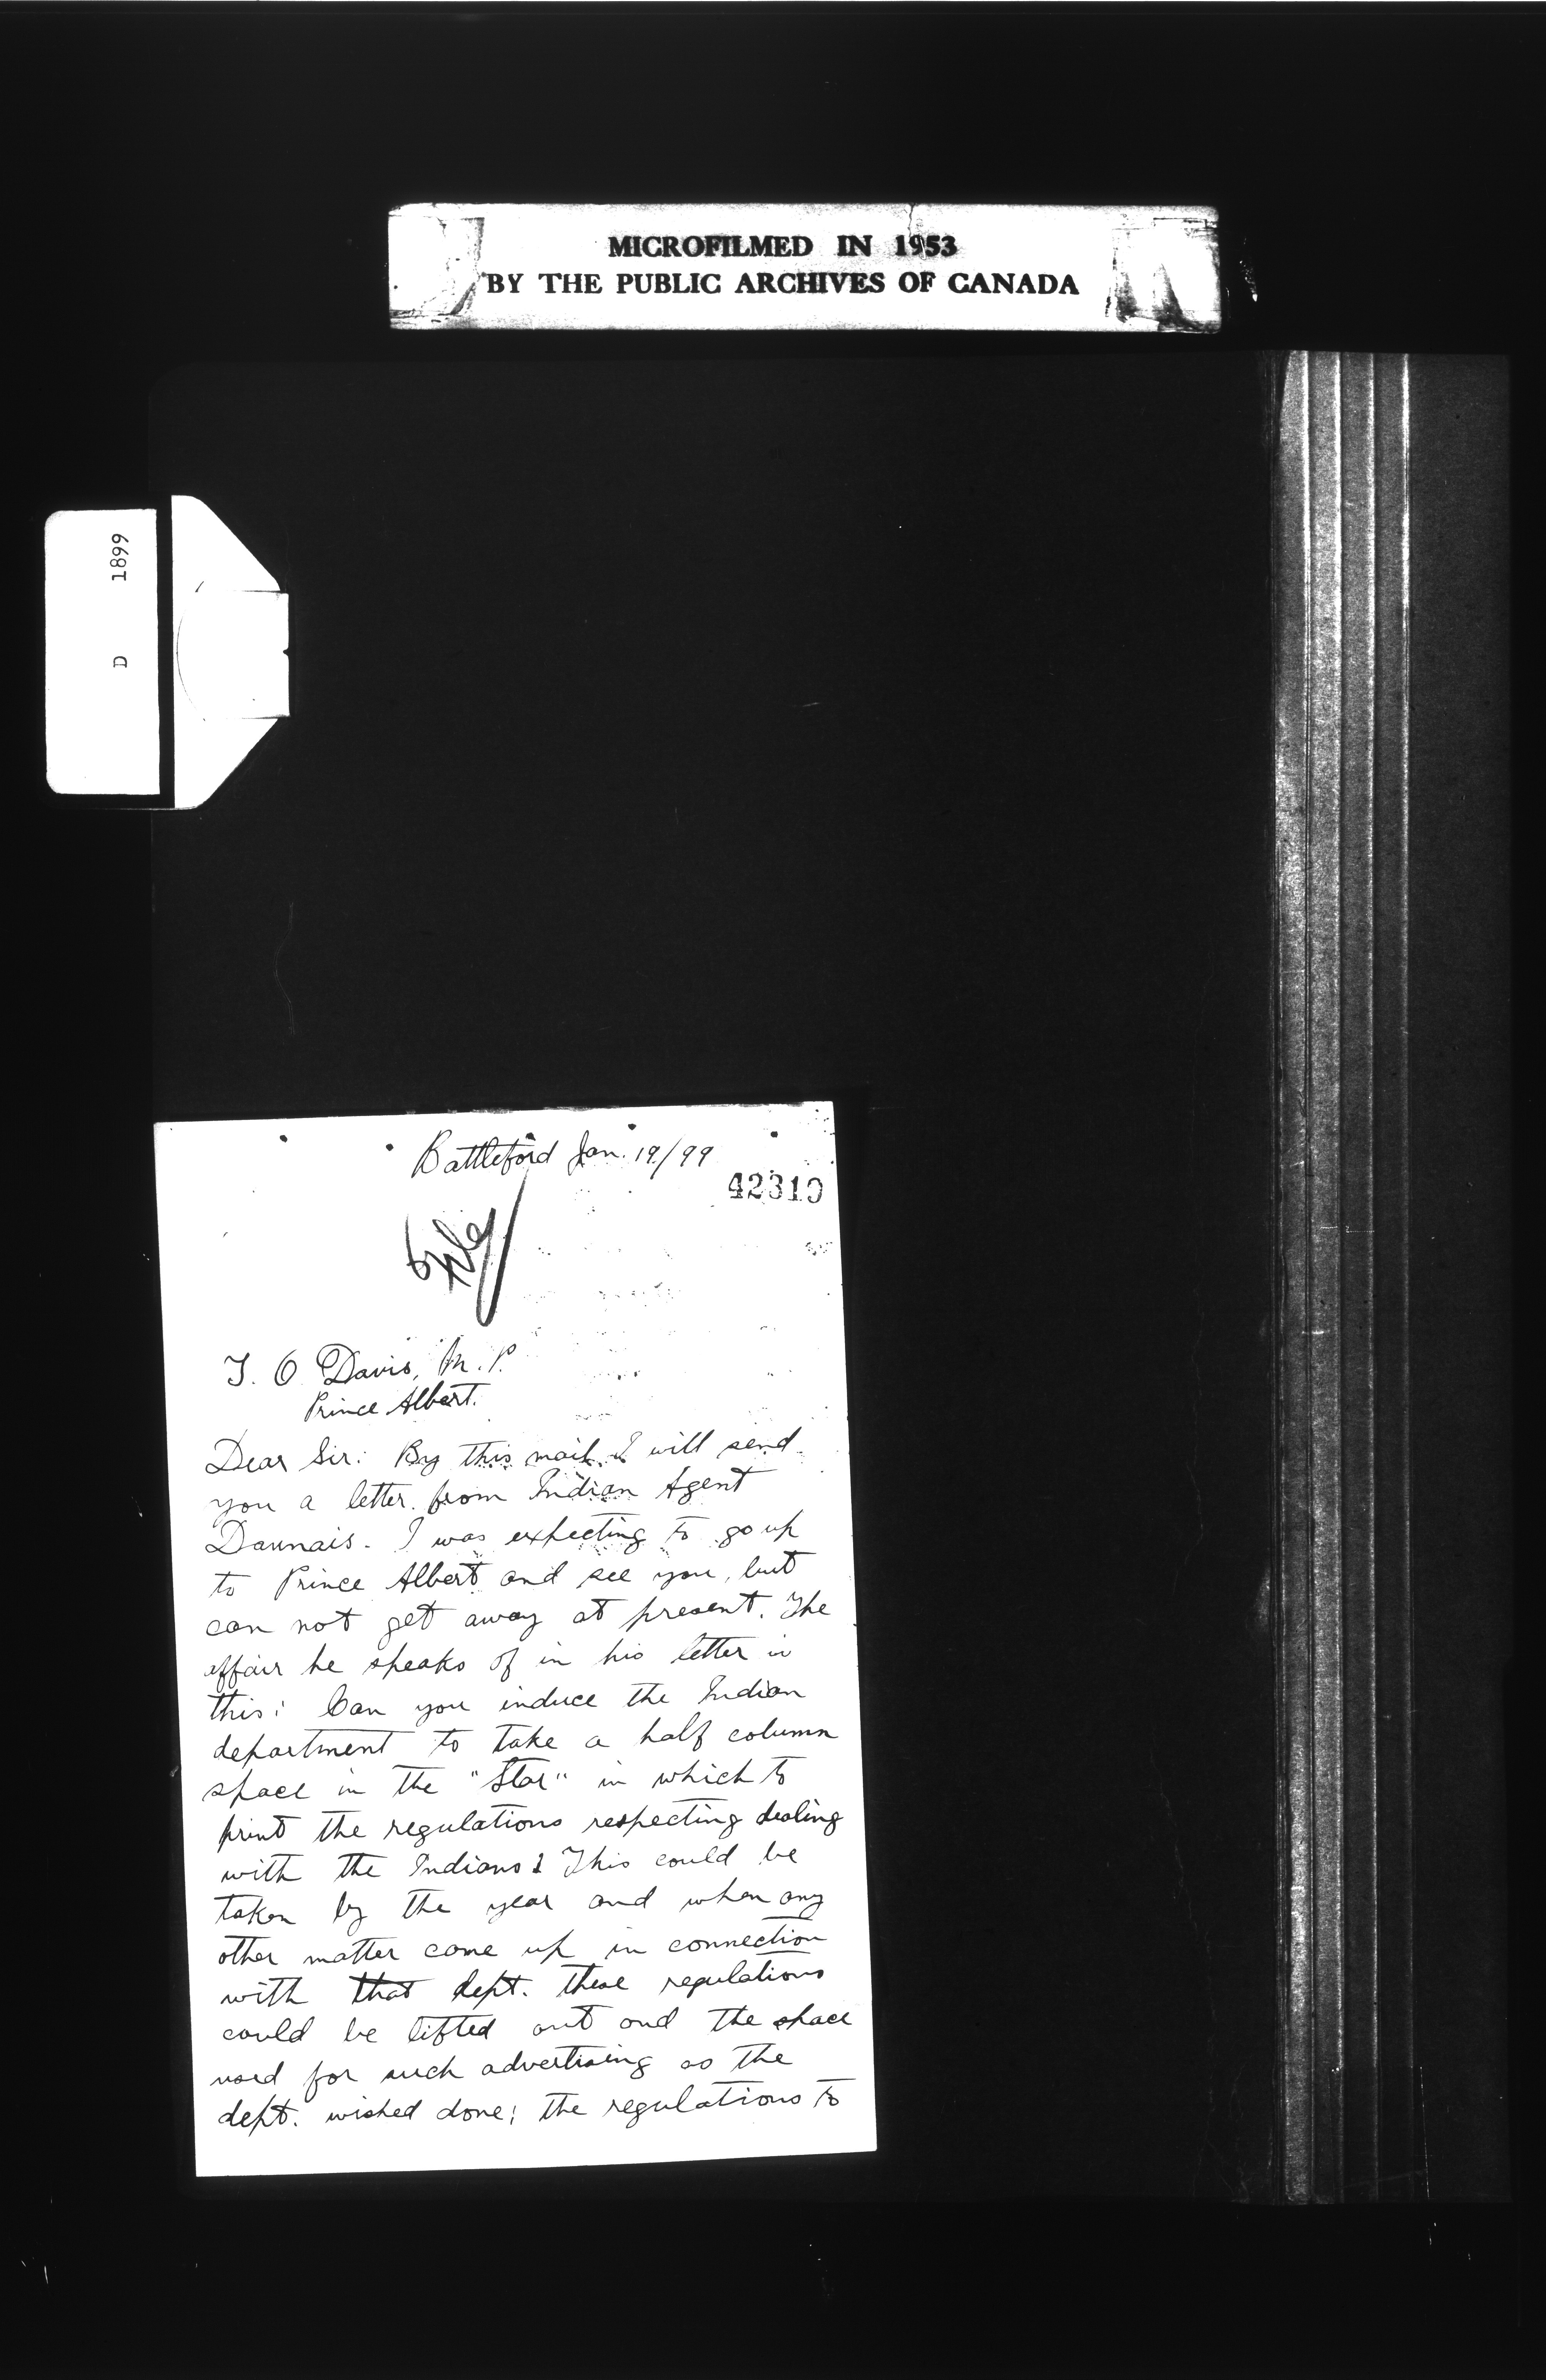 MICROFILMED IN 1953
BY THE PUBLIC ARCHIVES OF CANADA
D 1899
Battleford Jan. 19/99
42310
File
T. O. Davis, M. P.
Prince Albert.
Dear Sir: By this mail I will send
you a letter from Indian Agent
Daunais. I was expecting to go up
to Prince Albert and see you, but
can not get away at present. The
affair he speaks of in his letter is
this: Can you induce the Indian
department to take a half column
space in the "Star" in which to
print the regulations respecting dealing
with the Indians? This could be
taken by the year and when any
other matter came up in connection
with that dept. these regulations
could be lifted out and the space
used for such advertising as the
dept. wished done; the regulations to